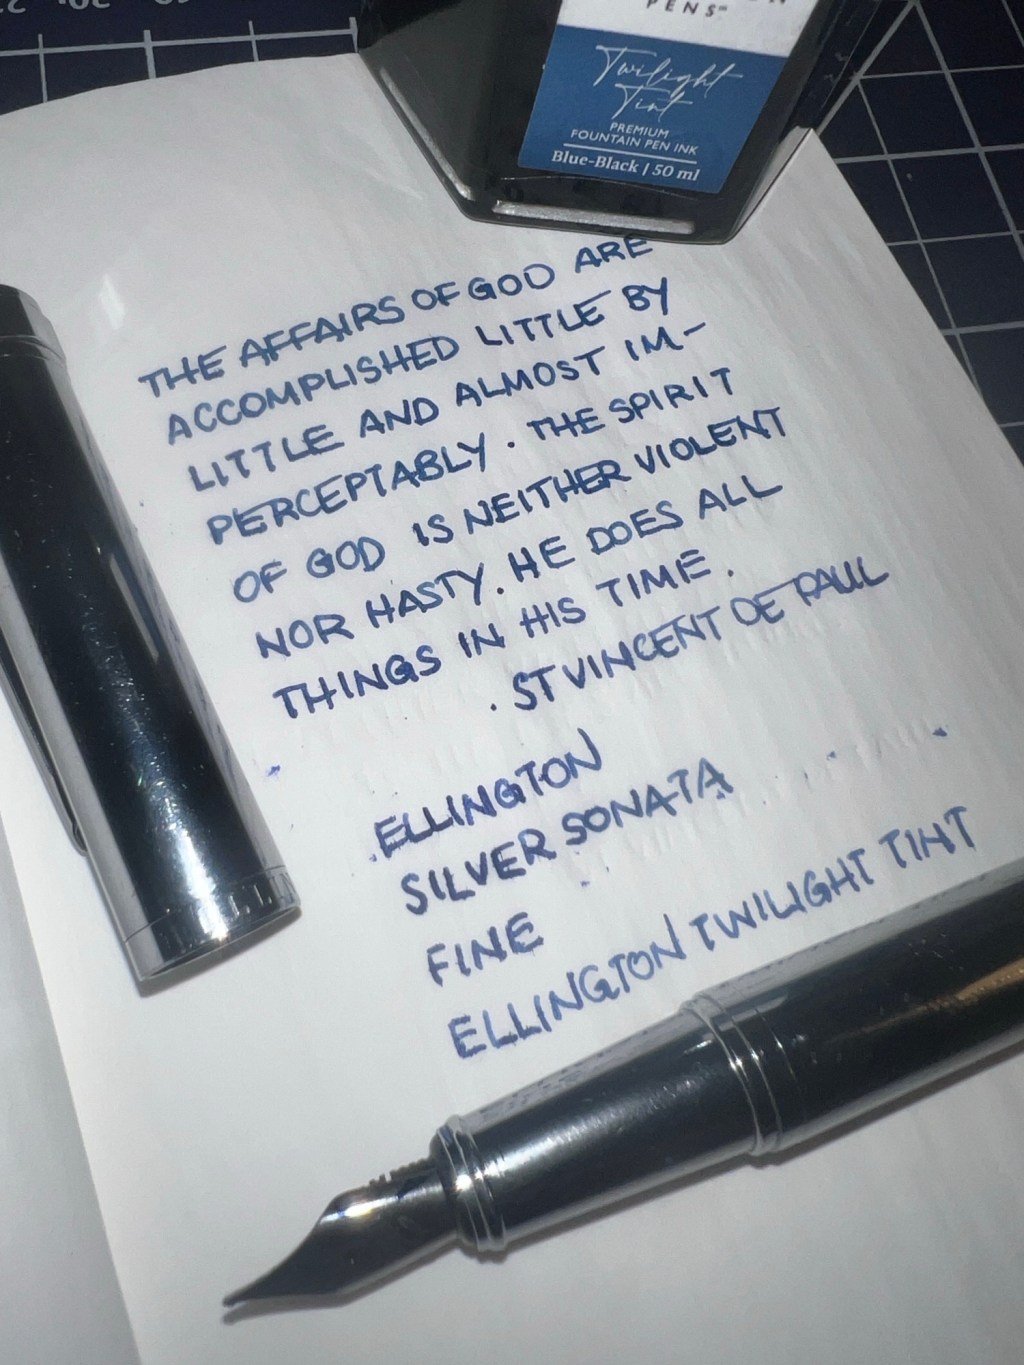 PENS
Twilight
Tint
PREMIUM
FOUNTAIN PEN INK
Blue-Black | 50 ml
THE AFFAIRS OF GOD ARE
ACCOMPLISHED LITTLE BY
LITTLE AND ALMOST IM-
PERCEPTABLY. THE SPIRIT
OF GOD IS NEITHER VIOLENT
NOR HASTY. HE DOES ALL
THINGS IN HIS TIME.
. ST VINCENT DE PAUL
ELLINGTON
SILVER SONATA
FINE
ELLINGTON TWILIGHT TINT